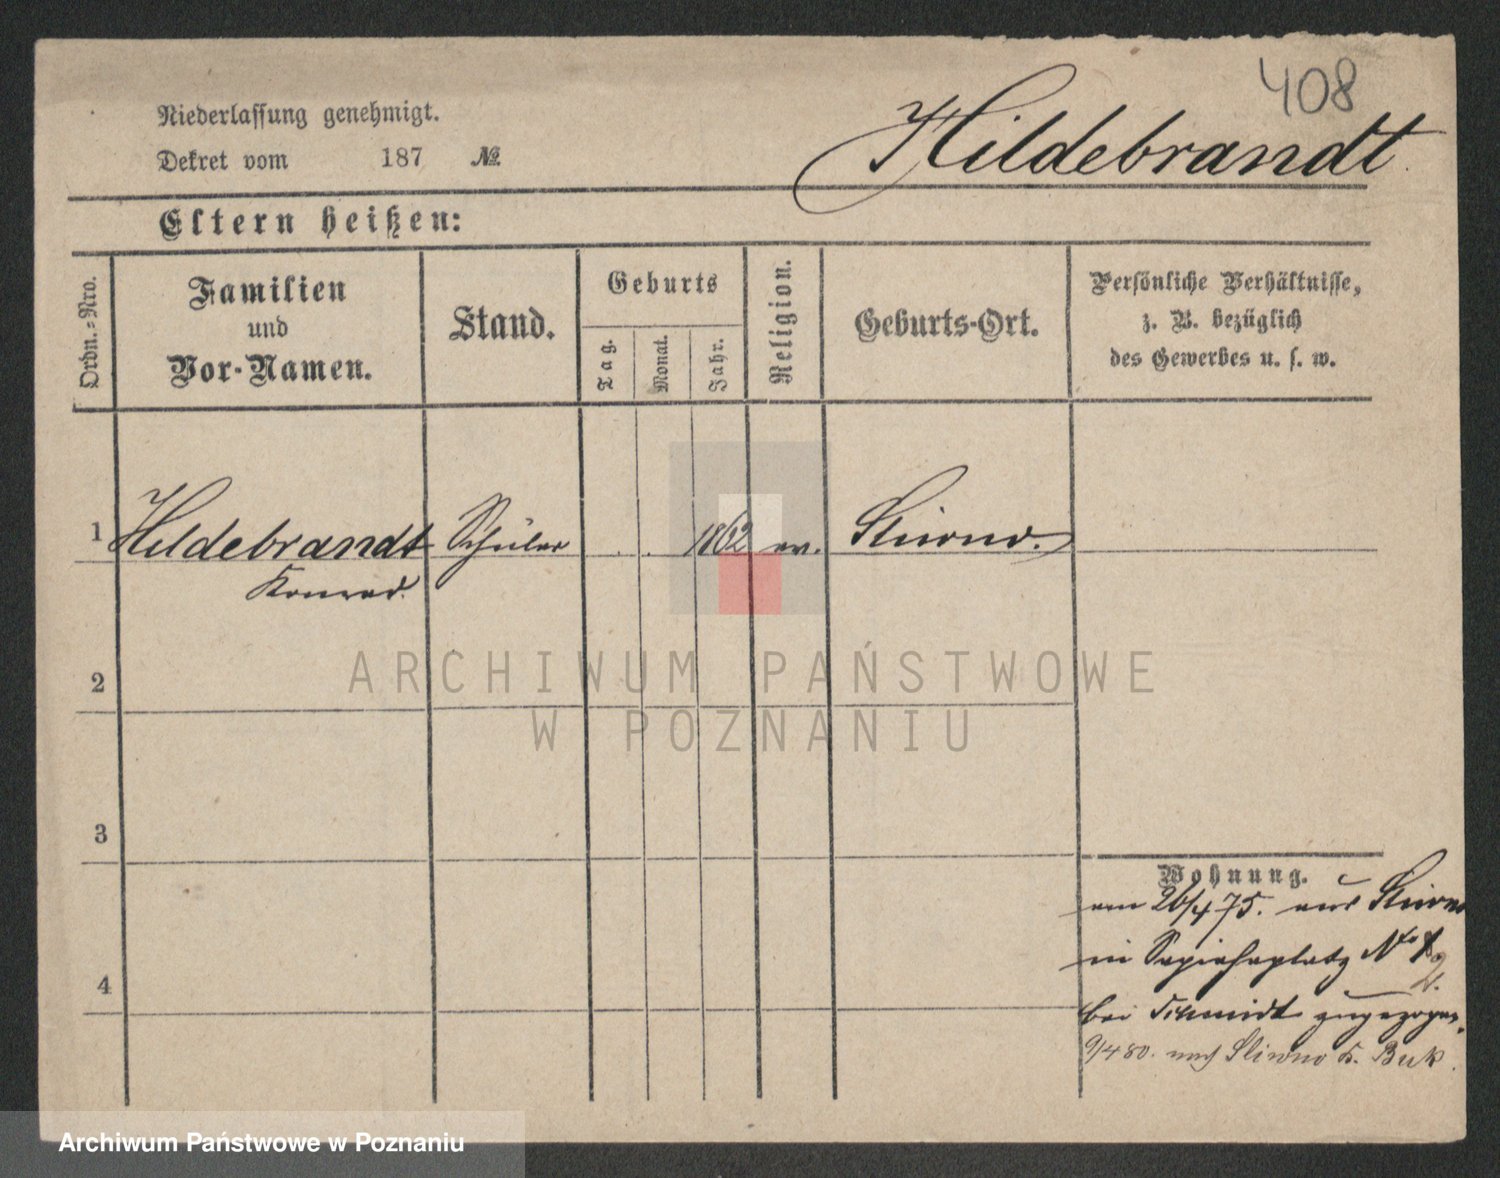 408
Hildebrandt
Niederlassung genehmigt.
Dekret vom 187 №
Eltern heißen:
Ordn.-Nro.
Familien
und
Vor-Namen.
Stand.
Geburts
Tag.
Monat.
Jahr.
Religion.
Geburts-Ort.
Persönliche Verhältnisse,
z. B. bezüglich
des Gewerbes u. s. w.
1 Hildebrandt Schüler 1862 ev. Sliwno.
Konrad.
2
3
4
Wohnung.
am 26/4 75. aus Sliwno
in Sapiehaplatz No
2.
bei Schmidt zugezogen.
9/4 80. nach Sliwno K. Buk.
ARCHIWUM PAŃSTWOWE
W POZNANIU
Archiwum Państwowe w Poznaniu